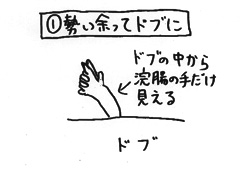 ①勢い余ってドブに
ドブの中から
浣腸の手だけ
見える
ドブ